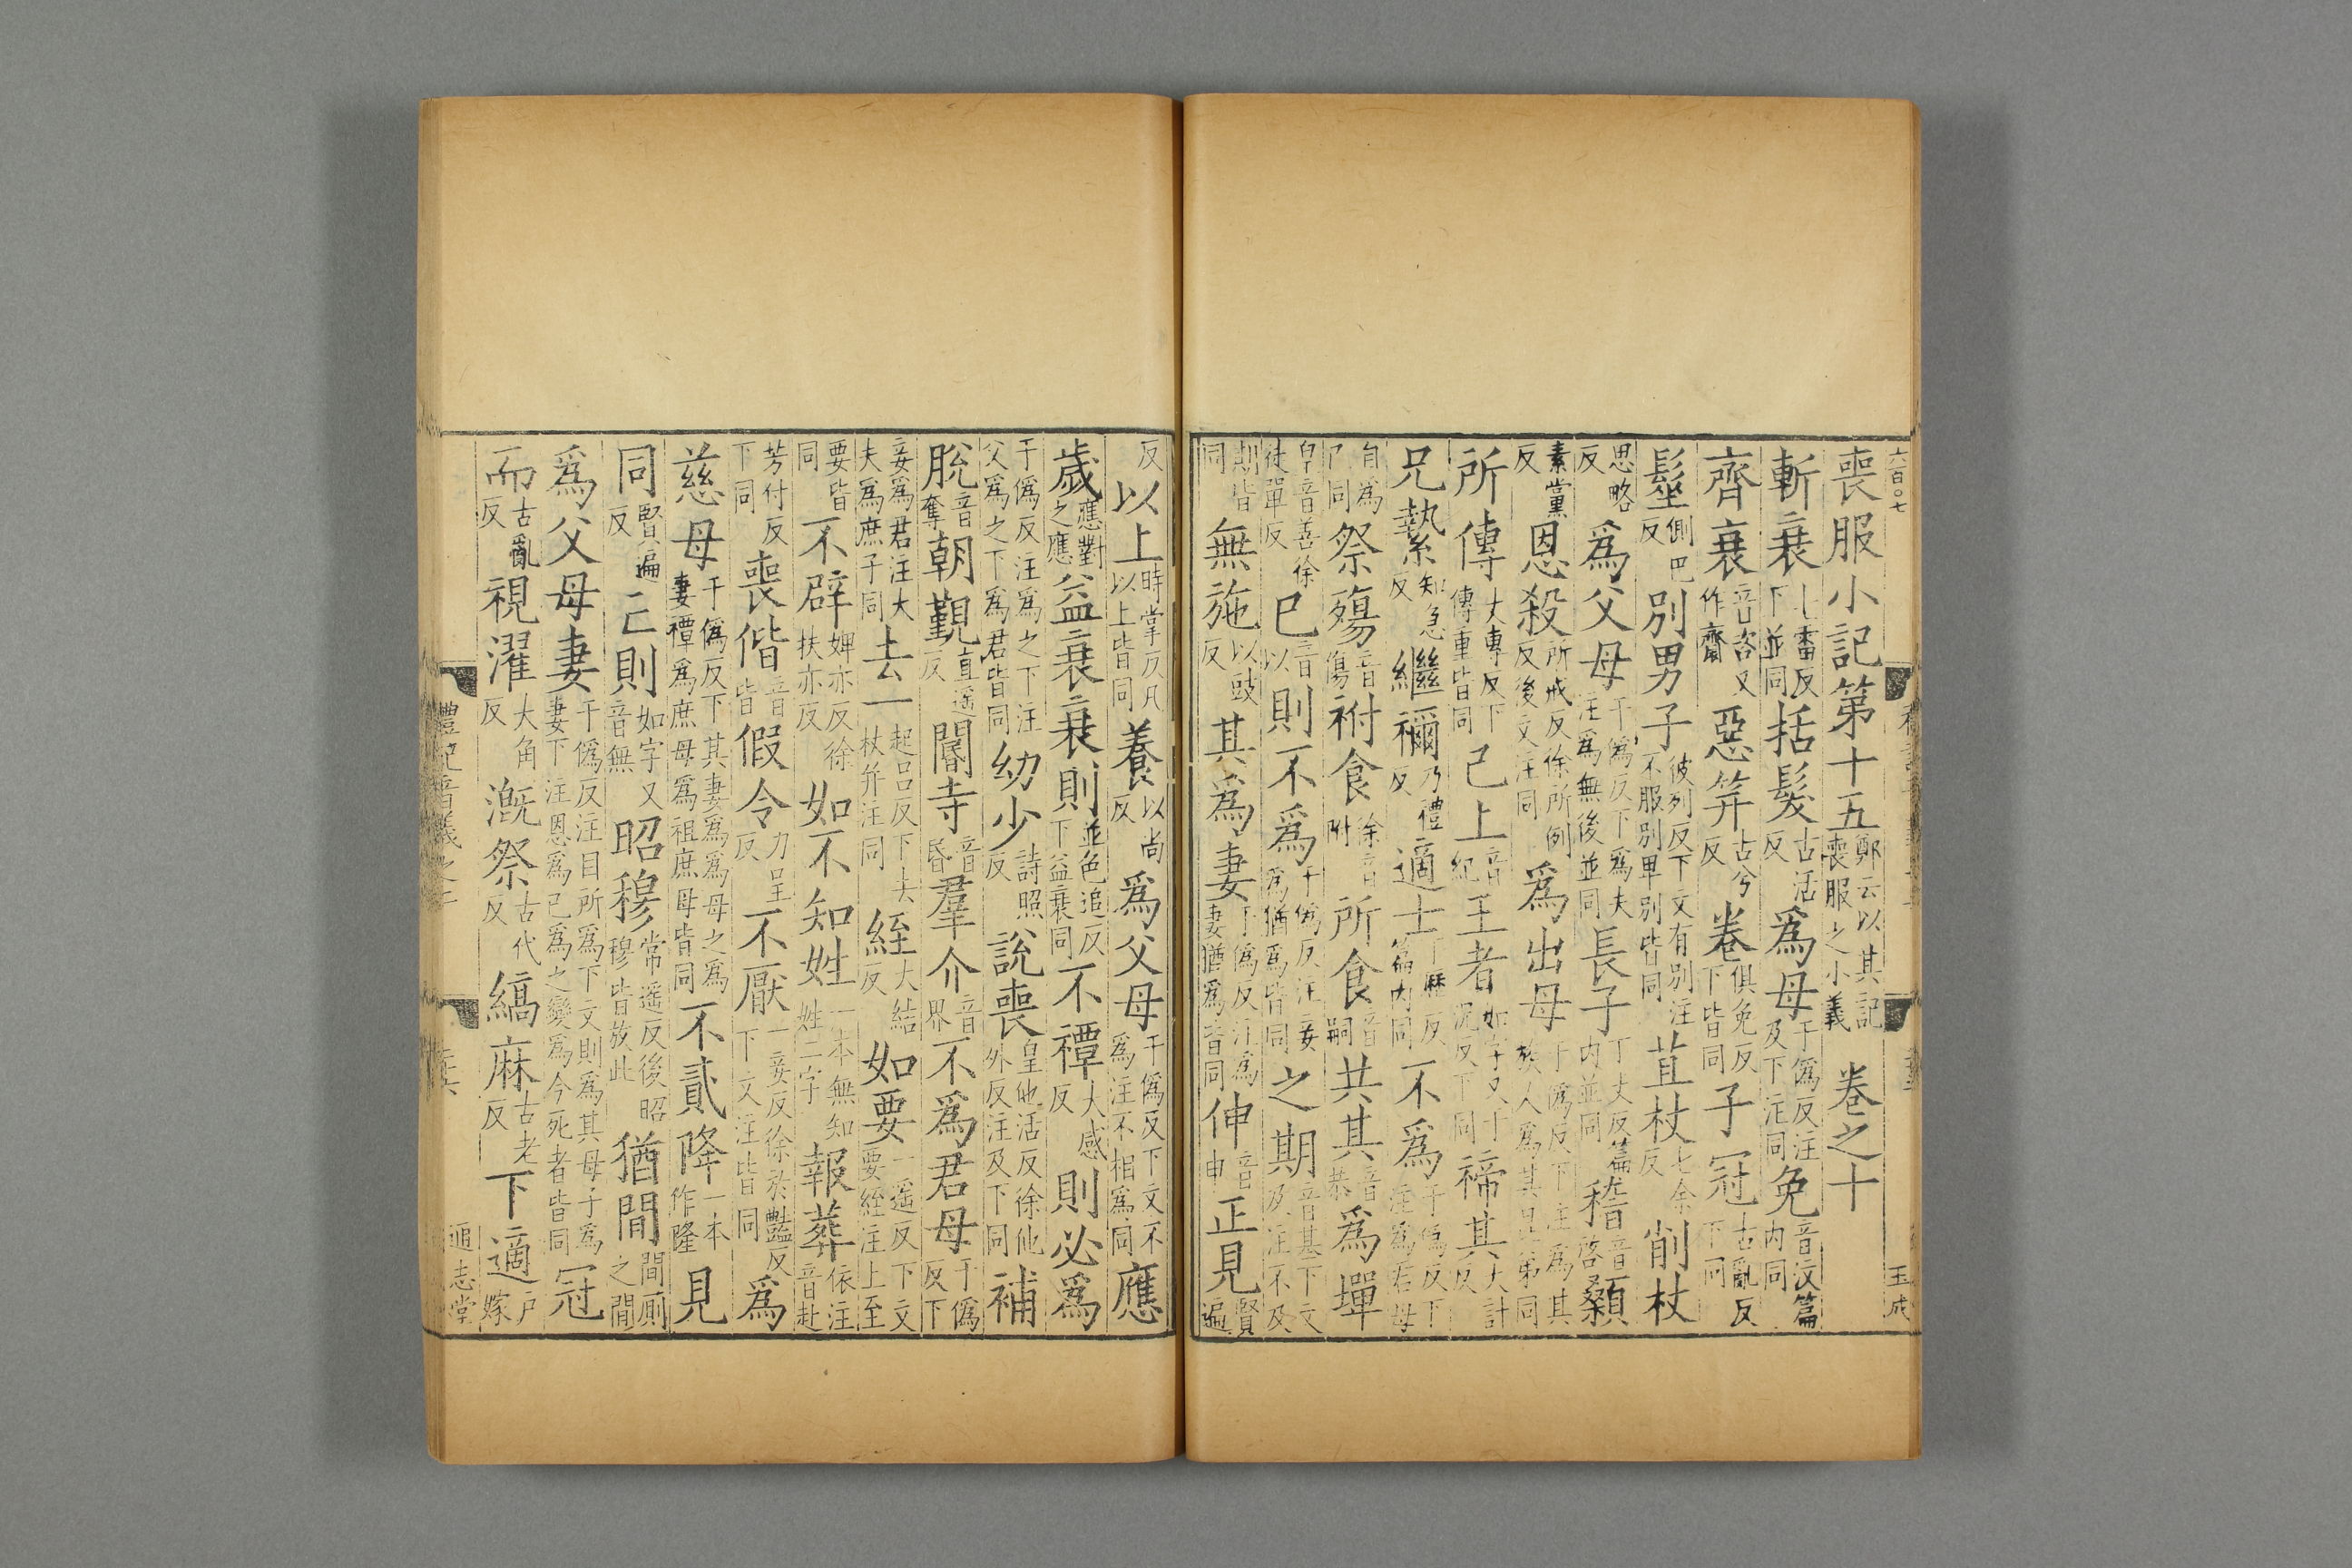 六百〇七
玉成
喪服小記第十五鄭云以其記喪服之小義 卷之十
斬衰七雷反下並同括髮古活反爲母于僞反注及下注同免音汶篇内同
齊衰音咨又作齋惡笄古兮反卷俱免反下皆同子冠古亂反下同
髽側巴反別男子彼列反下文有別注不服別卑別皆同苴杖七余反削杖
思略反爲父母于僞反下爲夫注爲無後並同長子丁丈反篇内並同稽音啓顙
素黨反恩殺所戒反徐所例反後文注同爲出母于僞反下注爲其族人爲其兄弟同
所傳丈專反下傳重皆同己上音紀王者如字又于況反下同禘其大計反
兄縶知急反繼禰乃禮反適士丁歷反篇内同不爲于僞反下注爲君母
自爲己同祭殤音傷祔食徐音附所食音嗣共其音恭爲墠
皇音善徐徒單反巳音以則不爲于僞反注妾爲猶爲皆同之期音基下文及注不及
期皆同無施以豉反其爲妻于僞反注爲妻猶爲者同伸音申正見賢遍
反以上時掌反凡以上皆同養以尚反爲父母于僞反下文不爲注不相爲同應
歲應對之應益衰衰則並色追反下益衰同不禫大感反則必爲
于僞反注爲之下注父爲之下爲君皆同幼少詩照反說喪皇他活反徐他外反注及下同補
脫音奪朝覲直遥反閽寺音昏羣介音界不爲君母于僞反下
妾爲君注大夫爲庶子同去一起呂反下去杖并注同絰大結反如要一遥反下文要絰注上至
要皆同不辟婢亦反徐扶亦反如不知姓一本無知姓二字報葬依注音赴
芳付反下同喪偕音皆假令力呈反不厭一妾反徐於豔反下文注皆同爲
慈母于僞反下其妻爲爲母之爲妻禫爲庶母爲祖庶母皆同不貳降一本作隆見
同賢遍反亡則如字又音無昭穆常遥反後昭穆皆放此猶間間厠之間
爲父母妻于僞反注目所爲下文則爲其母子爲妻下注恩爲己爲之變爲今死者皆同冠
而古亂反視濯大角反漑祭古代反縞麻古老反下適戶嫁
禮記音義之二
通志堂